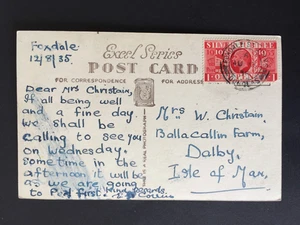 Foxdale
12/8/35.
Excel Series
POST CARD
FOR CORRESPONDENCE
FOR ADDRESS
Dear Mrs Christain,
If all being well
and a fine day
we shall be
calling to see you
on Wednesday.
Sometime in the
afternoon it will be
as we are going
to Peel first. Kind regards.
Collins
A REAL PHOTOGRAPH
SILVER JUBILEE
Mrs W. Christain.
Ballacallin Farm,
Dalby,
Isle of Man.